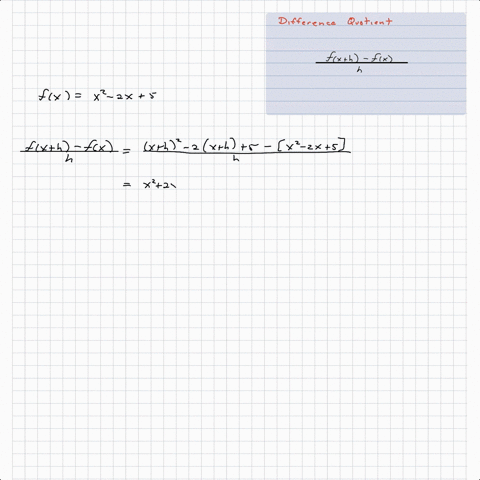 Difference Quotient
f(x+h) - f(x)
h
f(x) = x² - 2x + 5
f(x+h) - f(x) = (x+h)² - 2(x+h) + 5 - [x² - 2x + 5]
h h
= x² + 2x